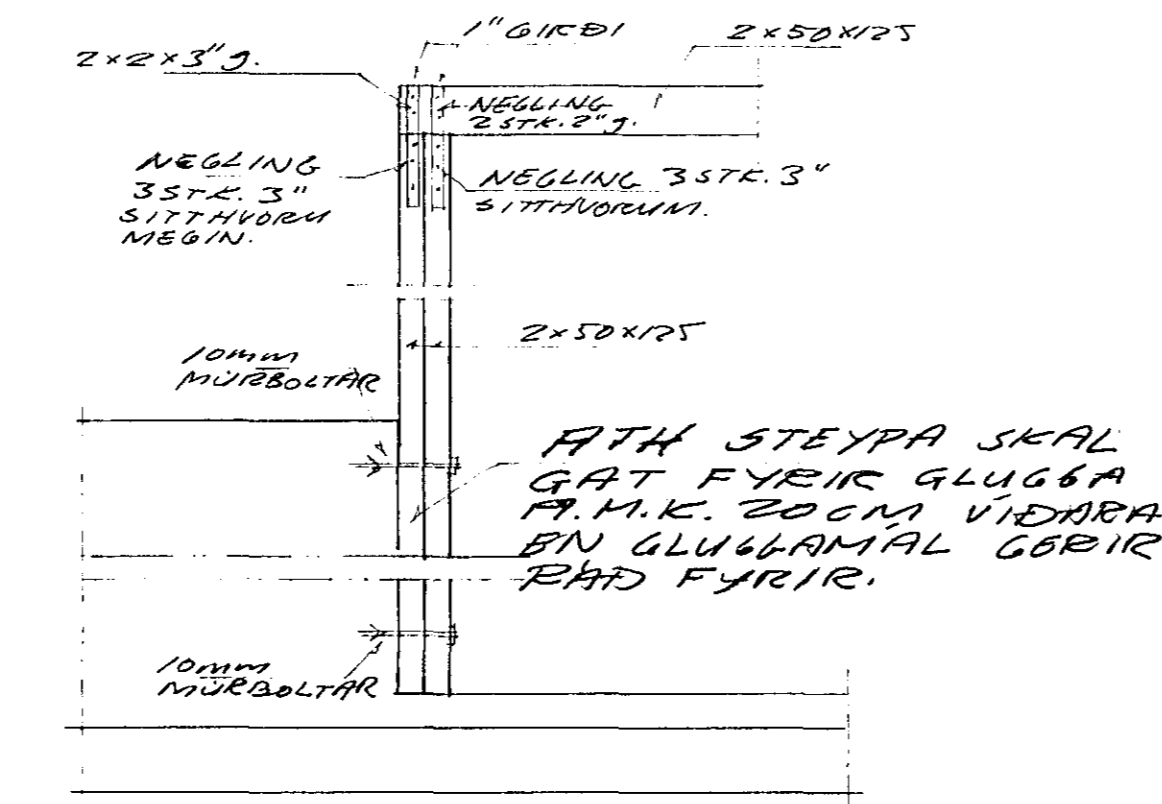 1" GIRÐI
2×50×125
2×2×3" g.
NEGLING
2 STK. 2" g.
NEGLING
3 STK. 3"
SITTHVORU
MEGIN.
NEGLING 3 STK. 3"
SITTHVORUM.
2×50×125
10mm
MÚRBOLTAR
ATH STEYPA SKAL
GAT FYRIR GLUGGA
A.M.K. 20CM VÍÐARA
EN GLUGGAMÁL GERIR
RÁÐ FYRIR.
10mm
MÚRBOLTAR